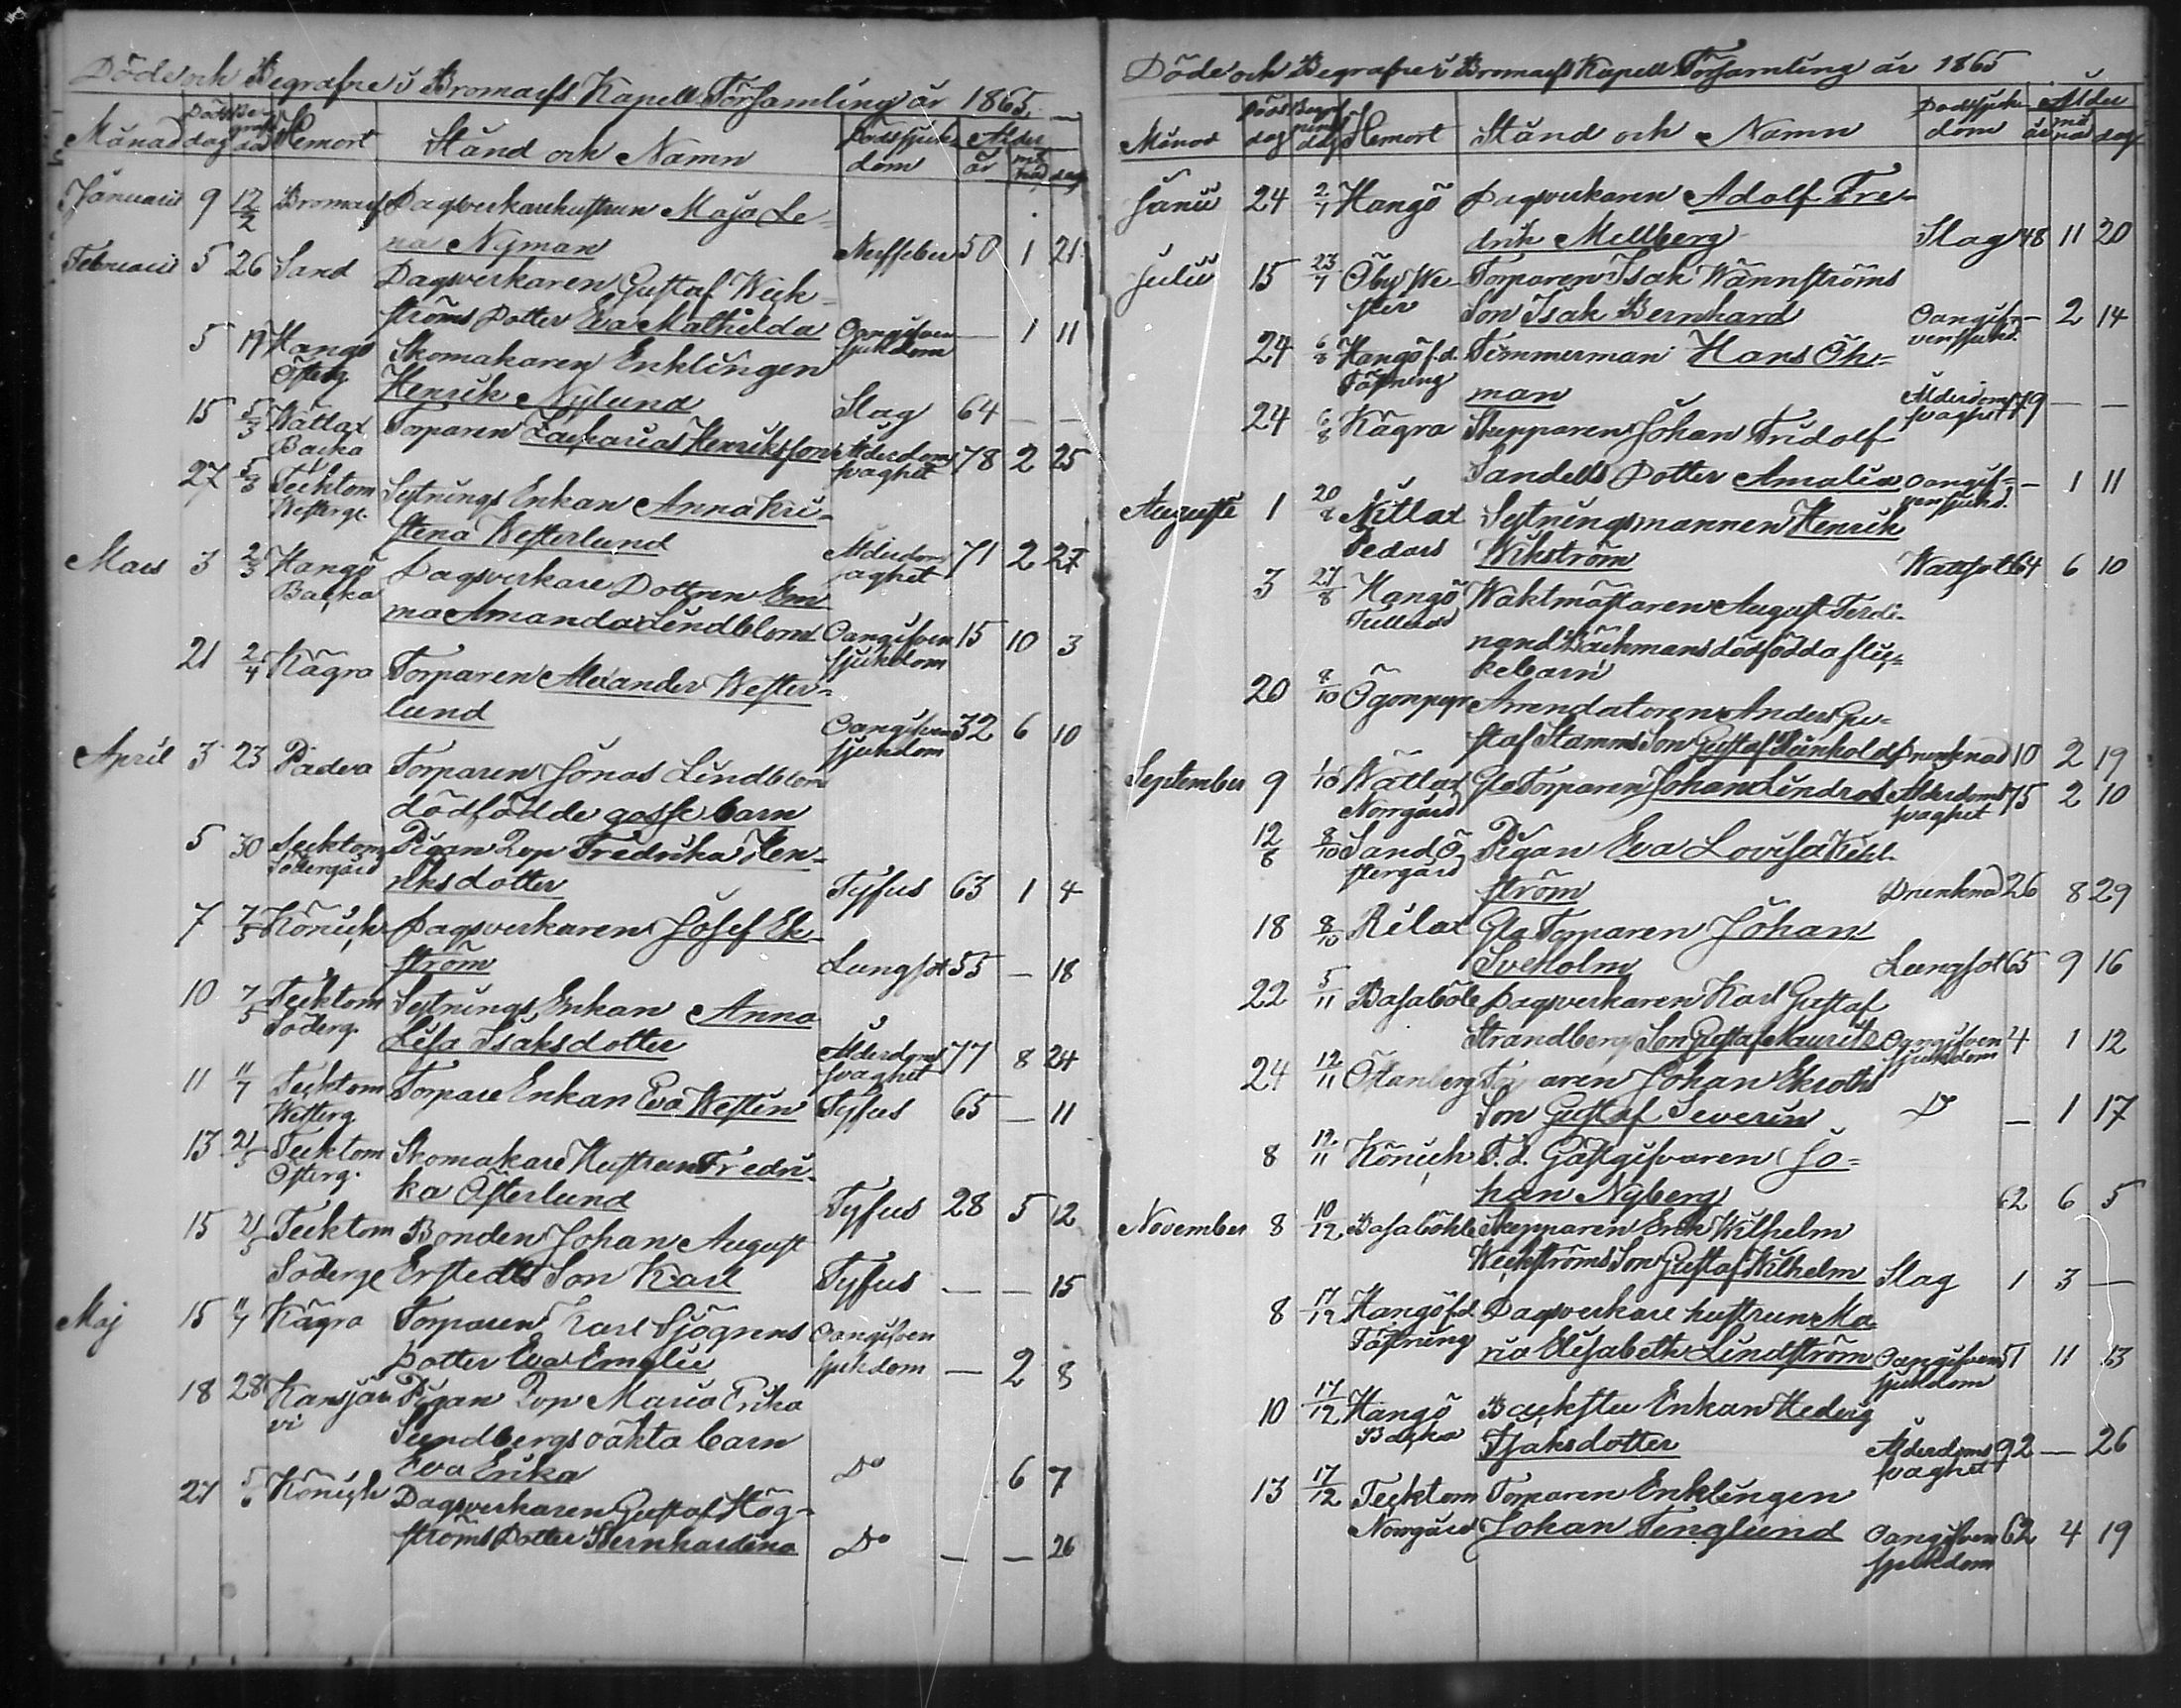 Döde och Begrafne i Bromarfs Kapell Församling år 1865
Månad Döds dag Begrafn. dag Hemort Stånd och Namn Dödssjukdom Ålder år månad dag
Januarii 9 12/2 Bromarf Dagsverkarehustrun Maja Le-
na Nyman Nerffeber 50 1 21
Februarii 5 26 Sand Dagsverkaren Gustaf Wick-
ströms Dotter Eva Mathilda Oangifven sjukdom — 1 11
5 19 Hangö Österg. Skomakaren Enklingen
Henrik Nylund Slag 64 — —
15 5/3 Wättlax Backa Torparen Zacharias Henriksson Ålderdoms svaghet 78 2 25
27 5/3 Tecktom Westerg. Sytnings Enkan Anna Kri-
stena Westerlund Ålderdoms svaghet 71 2 27
Mars 3 2/3 Hangö Backa Dagsverkare Dottren Em
ma Amanda Lindblom Oangifven sjukdom 15 10 3
21 2/4 Kägra Torparen Alexander Wester-
lund Oangifven sjukdom 32 6 10
April 3 23 Padva Torparen Jonas Lindblom
dödfödde gosse barn
5 30 Tecktom Södergård Pigan Lop Fredrika Hen-
riksdotter Tyfus 63 1 4
7 7/5 Könick Dagsverkaren Josef Ek-
ström Lungsot 55 — 18
10 7/5 Tecktom Söderg. Sytnings Enkan Anna
Lisa Isaksdotter Ålderdoms svaghet 77 8 24
11 11/7 Tecktom Westerg Torpare Enkan Eva Westin Tyfus 65 — 11
13 21/5 Tecktom Österg. Skomakare Hustrun Fredri-
ka Österlund Tyfus 28 5 12
15 21/5 Tecktom Bonden Johan August
Söderg Erstedts Son Karl Tyfus — — 15
Maj 15 11/7 Kägra Torparen Karl Sjögrens
Dotter Eva Emelie Oangifven sjukdom — 2 8
18 28 Kansjärvi Pigan Lop Maria Erika
Sundbergs oäkta barn
Eva Erika Do 6 7
27 5/6 Könick Dagsverkaren Gustaf Hög-
ströms Dotter Bernhardina Do — — 26
Döde och Begrafne i Bromarfs Kapell Församling år 1865
Månad Döds dag Begrafnings dag Hemort Stånd och Namn Dödssjukdom Ålder år månad dag
Junii 24 2/7 Hangö Dagsverkaren Adolf Fre-
drik Mellberg Slag 48 11 20
Julii 15 23/7 Öby We- Torparen Isak Wännströms
ster Son Isak Bernhard Oangifven sjukd. — 2 14
24 6/8 Hangö f.d. Fästning Timmerman Hans Öh-
man Ålderdoms svaghet 79 — —
24 6/8 Kägra Skepparen Johan Fridolf
Sandells Dotter Amalia Oangifven sjukd. — 1 11
Augusti 1 20/8 Nitlax Sytningsmannen Henrik
Pedars Wikström Wattsot 64 6 10
3 27/8 Hangö Waktmästaren August Ferdi-
nand Bäckmans dödfödda flic-
kebarn
20 8/10 Arrendatoren Anders Gu-
staf Stamms Son Gustaf Reinhold Drunknad 10 2 19
September 9 1/10 Wättlax Norrgård Gla Torparen Johan Lindros Ålderdoms svaghet 75 2 10
12/8 8/10 Sand Ö Pigan Eva Lovisa
stergård ström Drunknad 26 8 29
18 8/10 Rilax Gla Torparen Johan
Sveholm Lungsot 65 9 16
22 5/11 Basaböle Dagsverkaren Karl Gustaf
Strandberg Son Gustaf Mauritz Oangifven sjukdom 4 1 12
24 12/11 Östanberg Torparen Johan Ekroths
Son Gustaf Severin Do — 1 17
8 12/11 Könick F.d. Gästgifvaren Jo-
han Nyberg 62 6 5
November 8 10/12 Basaböhle Skepparen Erik Wilhelm
Weckströms Son Gustaf Wilhelm Slag 1 3 —
8 17/12 Hangö f.d. Dagsverkare hustrun Ma-
Fästning ria Elisabeth Lindström Oangifven sjukdom 51 11 13
10 17/12 Hangö Backstu Enkan Hedvig
Backa Isaksdotter Ålderdoms svaghet 92 — 26
13 17/12 Tecktom Torparen Enklingen
Norrgård Johan Tenglund Oangifven sjukdom 62 4 19